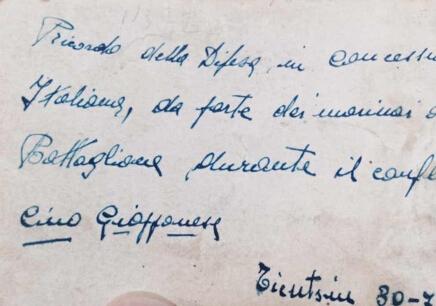 Ricordo della Difesa, in concess
Italiana, da parte dei marinai d
Battaglione durante il confl
Cino Giapponese
Tientsin 30-